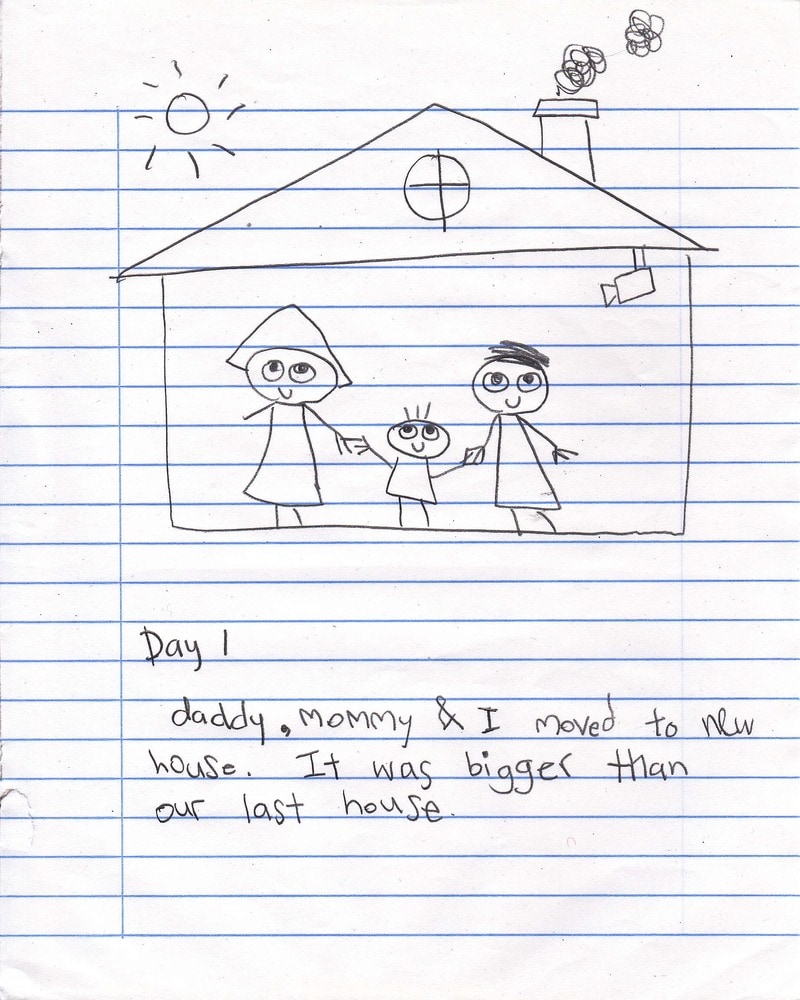 Day 1
daddy, mommy & I moved to new
house. It was bigger than
our last house.